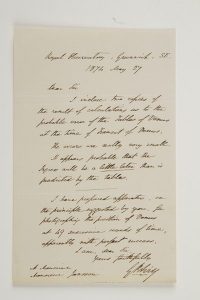 Royal Observatory, Greenwich, S.E.
1874 May 27
Dear Sir
I inclose two copies of
the result of calculations as to the
probable error of the Tables of Venus
at the time of Transit of Venus.
The errors are really very small.
It appears probable that the
Ingress will be a little later than is
predicted by the tables.
I have prepared apparatus, on
the principle suggested by you, for
photographing the position of Venus
at 49 successive seconds of time,
apparently with perfect success.
I am, dear Sir,
Yours faithfully
G B Airy
A Monsieur
Monsieur Janssen